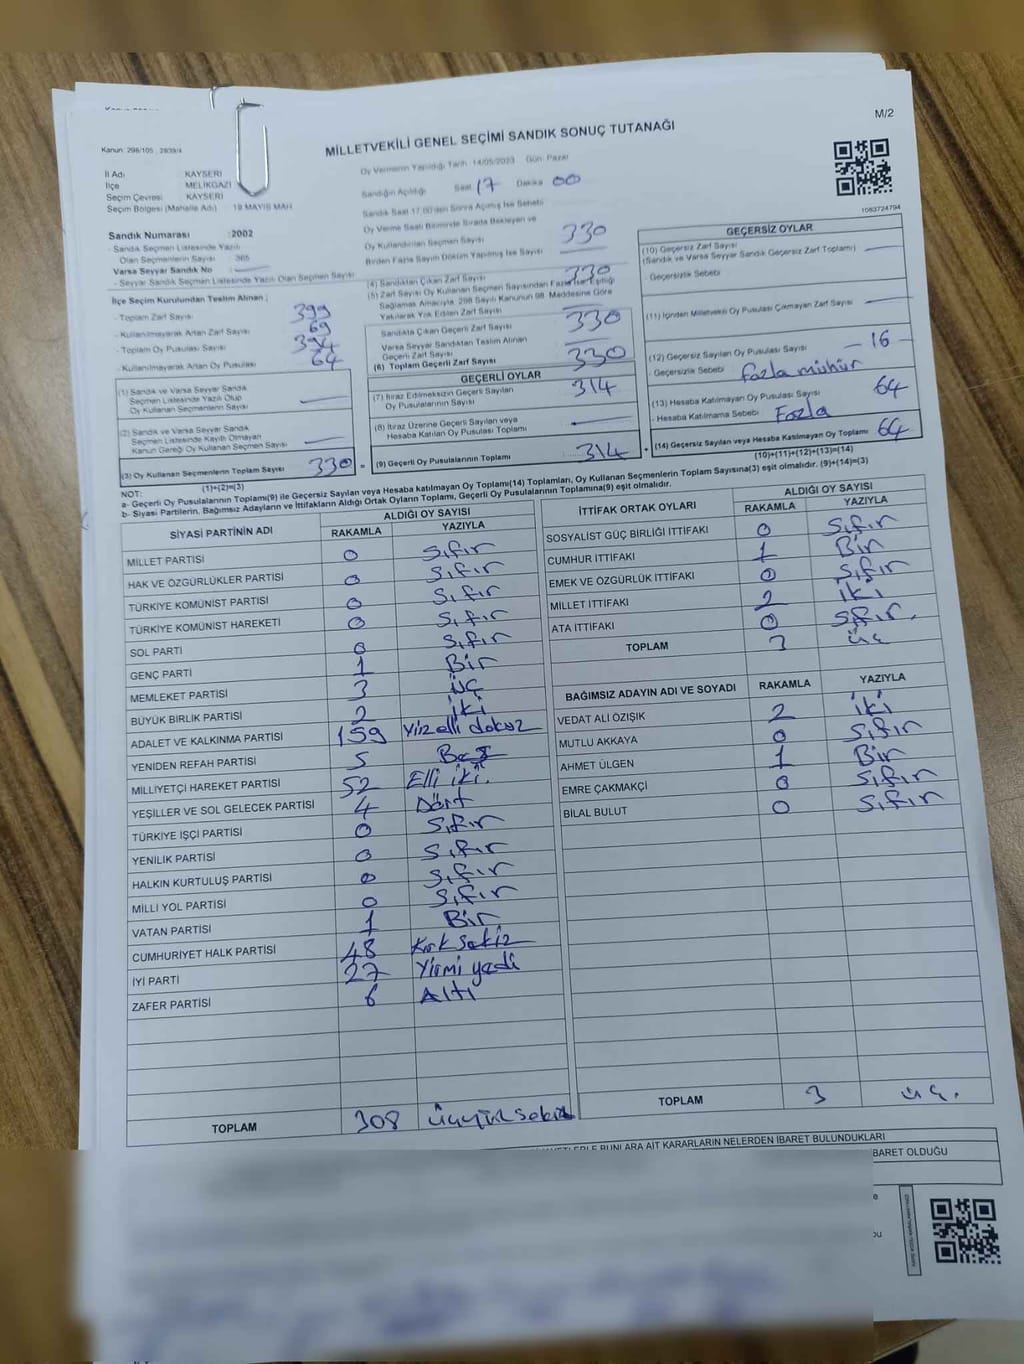 M/2
MİLLETVEKİLİ GENEL SEÇİMİ SANDIK SONUÇ TUTANAĞI
Kanun: 298/105 ; 2839/4
Oy Vermenin Yapıldığı Tarih 14/05/2023 Gün: Pazar
İl Adı KAYSERİ
İlçe MELİKGAZİ
Seçim Çevresi: KAYSERİ
Seçim Bölgesi (Mahalle Adı) 19 MAYIS MAH.
Sandık Numarası :2002
- Sandık Seçmen Listesinde Yazılı
Olan Seçmenlerin Sayısı : 365
Varsa Seyyar Sandık No
- Seyyar Sandık Seçmen Listesinde Yazılı Olan Seçmen Sayısı
İlçe Seçim Kurulundan Teslim Alınan ;
- Toplam Zarf Sayısı 399
- Kullanılmayarak Artan Zarf Sayısı 69
- Toplam Oy Pusulası Sayısı 394
- Kullanılmayarak Artan Oy Pusulası 64
(1) Sandık ve Varsa Seyyar Sandık
Seçmen Listesinde Yazılı Olup
Oy Kullanan Seçmenlerin Sayısı
(2) Sandık ve Varsa Seyyar Sandık
Seçmen Listesinde Kayıtlı Olmayan
Kanun Gereği Oy Kullanan Seçmen Sayısı
(3) Oy Kullanan Seçmenlerin Toplam Sayısı 330
(1)+(2)=(3)
Sandığın Açıldığı Saat 17 Dakika 00
Sandık Saat 17.00'den Sonra Açılmış İse Sebebi
Oy Verme Saati Bitiminde Sırada Bekleyen ve
Oy Kullandırılan Seçmen Sayısı 330
Birden Fazla Sayım Döküm Yapılmış İse Sayısı
(4) Sandıktan Çıkan Zarf Sayısı 330
(5) Zarf Sayısı Oy Kullanan Seçmen Sayısından Fazla İse, Eşitliği
Sağlamak Amacıyla, 298 Sayılı Kanunun 98. Maddesine Göre
Yakılarak Yok Edilen Zarf Sayısı
Sandıkta Çıkan Geçerli Zarf Sayısı 330
Varsa Seyyar Sandıktan Teslim Alınan
Geçerli Zarf Sayısı
(6) Toplam Geçerli Zarf Sayısı 330
GEÇERLİ OYLAR
(7) İtiraz Edilmeksizin Geçerli Sayılan
Oy Pusulalarının Sayısı 314
(8) İtiraz Üzerine Geçerli Sayılan veya
Hesaba Katılan Oy Pusulası Toplamı
= (9) Geçerli Oy Pusulalarının Toplamı 314 +
1083724794
GEÇERSİZ OYLAR
(10) Geçersiz Zarf Sayısı
(Sandık ve Varsa Seyyar Sandık Geçersiz Zarf Toplamı)
- Geçersizlik Sebebi
(11) İçinden Milletvekili Oy Pusulası Çıkmayan Zarf Sayısı
(12) Geçersiz Sayılan Oy Pusulası Sayısı - 16 -
- Geçersizlik Sebebi fazla mühür
(13) Hesaba Katılmayan Oy Pusulası Sayısı 64
- Hesaba Katılmama Sebebi Fazla
(14) Geçersiz Sayılan veya Hesaba Katılmayan Oy Toplamı 64
(10)+(11)+(12)+(13)=(14)
NOT:
a- Geçerli Oy Pusulalarının Toplamı(9) ile Geçersiz Sayılan veya Hesaba katılmayan Oy Toplamı(14) Toplamları, Oy Kullanan Seçmenlerin Toplam Sayısına(3) eşit olmalıdır. (9)+(14)=(3)
b- Siyasi Partilerin, Bağımsız Adayların ve İttifakların Aldığı Ortak Oyların Toplamı, Geçerli Oy Pusulalarının Toplamına(9) eşit olmalıdır.
SİYASİ PARTİNİN ADI ALDIĞI OY SAYISI
RAKAMLA YAZIYLA
MİLLET PARTİSİ 0 Sıfır
HAK VE ÖZGÜRLÜKLER PARTİSİ 0 Sıfır
TÜRKİYE KOMÜNİST PARTİSİ 0 Sıfır
TÜRKİYE KOMÜNİST HAREKETİ 0 Sıfır
SOL PARTİ 0 Sıfır
GENÇ PARTİ 1 Bir
MEMLEKET PARTİSİ 3 üç
BÜYÜK BİRLİK PARTİSİ 2 iki
ADALET VE KALKINMA PARTİSİ 159 Yüz elli dokuz
YENİDEN REFAH PARTİSİ 5 Beş
MİLLİYETÇİ HAREKET PARTİSİ 52 Elli iki.
YEŞİLLER VE SOL GELECEK PARTİSİ 4 Dört
TÜRKİYE İŞÇİ PARTİSİ 0 Sıfır
YENİLİK PARTİSİ 0 Sıfır
HALKIN KURTULUŞ PARTİSİ 0 Sıfır
MİLLİ YOL PARTİSİ 0 Sıfır
VATAN PARTİSİ 1 Bir
CUMHURİYET HALK PARTİSİ 48 Kırk sekiz
İYİ PARTİ 27 Yirmi yedi
ZAFER PARTİSİ 6 Altı
TOPLAM 308 üçyüz sekiz
İTTİFAK ORTAK OYLARI ALDIĞI OY SAYISI
RAKAMLA YAZIYLA
SOSYALİST GÜÇ BİRLİĞİ İTTİFAKI 0 Sıfır
CUMHUR İTTİFAKI 1 Bir
EMEK VE ÖZGÜRLÜK İTTİFAKI 0 Sıfır
MİLLET İTTİFAKI 2 iki
ATA İTTİFAKI 0 Sıfır.
TOPLAM 3 üç
BAĞIMSIZ ADAYIN ADI VE SOYADI RAKAMLA YAZIYLA
VEDAT ALİ ÖZIŞIK 2 iki
MUTLU AKKAYA 0 Sıfır
AHMET ÜLGEN 1 Bir
EMRE ÇAKMAKÇİ 0 Sıfır
BİLAL BULUT 0 Sıfır
TOPLAM 3 üç.
BUNLARA AİT KARARLARIN NELERDEN İBARET BULUNDUKLARI
BARET OLDUĞU